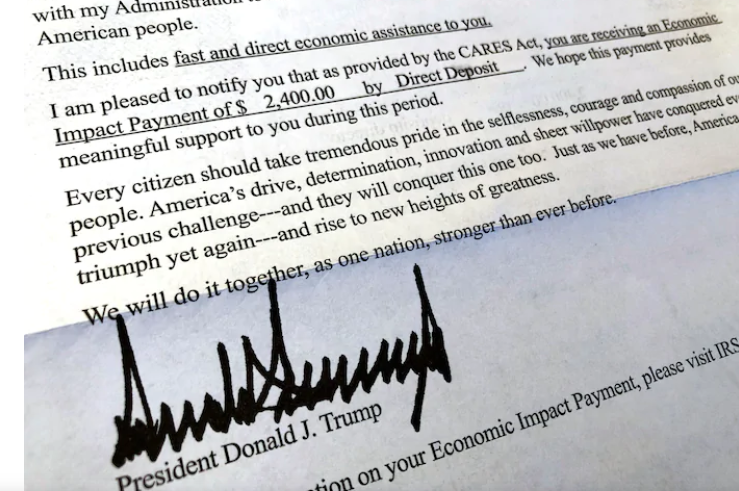 with my Administration
American people.
This includes fast and direct economic assistance to you.
I am pleased to notify you that as provided by the CARES Act, you are receiving an Economic
Impact Payment of $ 2,400.00 by Direct Deposit . We hope this payment provides
meaningful support to you during this period.
Every citizen should take tremendous pride in the selflessness, courage and compassion of
people. America's drive, determination, innovation and sheer willpower have conquered
previous challenge---and they will conquer this one too. Just as we have before, America
triumph yet again---and rise to new heights of greatness.
We will do it together, as one nation, stronger than ever before.
President Donald J. Trump
on your Economic Impact Payment, please visit IRS